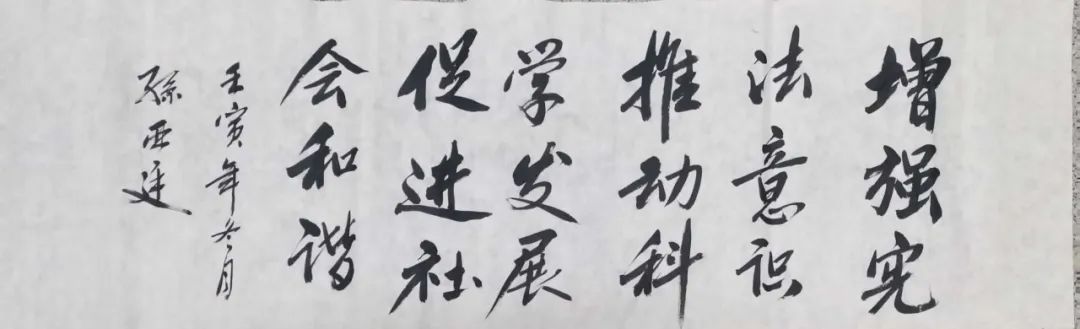 增强宪
法意识
推动科
学发展
促进社
会和谐
壬寅年冬月
孙西廷